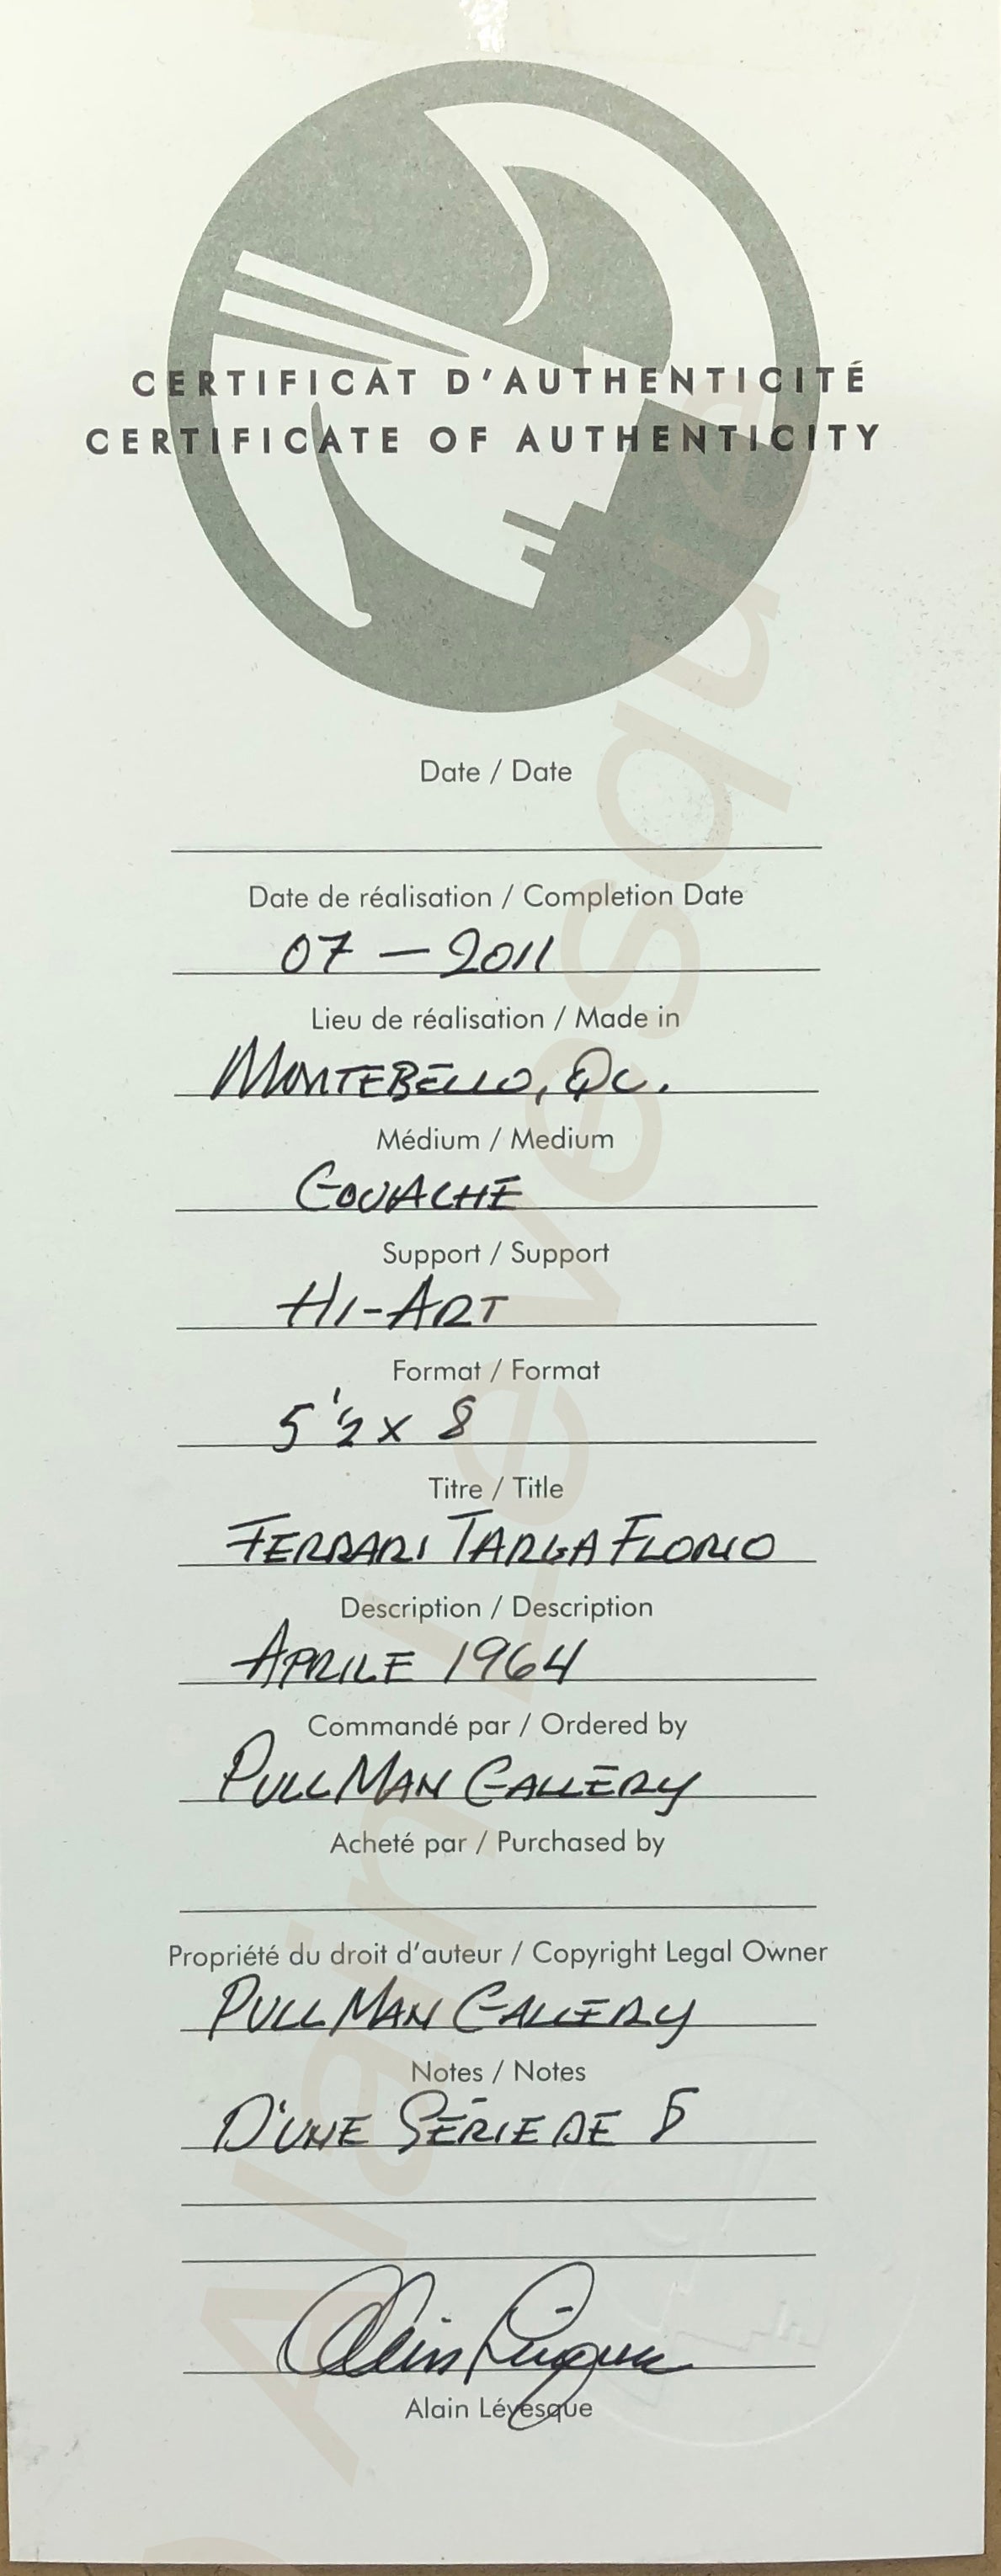 CERTIFICAT D'AUTHENTICITÉ
CERTIFICATE OF AUTHENTICITY
Date / Date
Date de réalisation / Completion Date
07 – 2011
Lieu de réalisation / Made in
MONTEBELLO, QC.
Médium / Medium
GOUACHE
Support / Support
HI-ART
Format / Format
5 1/2 x 8
Titre / Title
FERRARI TARGA FLORIO
Description / Description
APRILE 1964
Commandé par / Ordered by
PULLMAN GALLERY
Acheté par / Purchased by
Propriété du droit d'auteur / Copyright Legal Owner
PULLMAN GALLERY
Notes / Notes
D'UNE SÉRIE DE 5
Alain Lévesque
Alain Lévesque
Alain Levesque